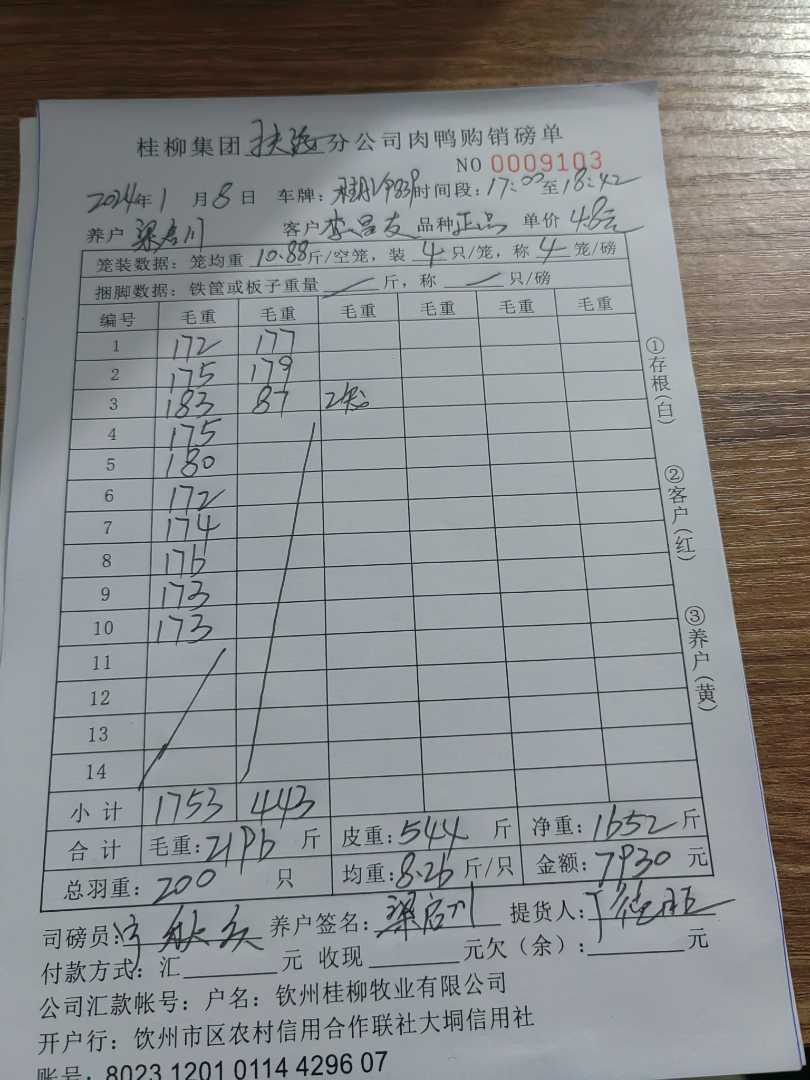 桂柳集团扶隆分公司肉鸭购销磅单
NO 0009103
2024年1月8日 车牌: 时间段:17:00至18:42
养户 梁启川 客户 李昌友 品种正品 单价 4.8元
笼装数据: 笼均重 10.88斤/空笼, 装 4 只/笼, 称 4 笼/磅
捆脚数据: 铁筐或板子重量 / 斤, 称 / 只/磅
编号 毛重 毛重 毛重 毛重 毛重 毛重
1 172 177
2 175 179
3 183 87 2笼
4 175
5 180
6 172
7 174
8 176
9 173
10 173
11
12
13
14
小计 1753 443
合计 毛重:2196 斤 皮重:544 斤 净重:1652斤
总羽重:200 只 均重:8.26斤/只 金额:7930 元
司磅员: 养户签名:梁启川 提货人:
付款方式: 汇 元 收现 元欠(余): 元
公司汇款帐号: 户名: 钦州桂柳牧业有限公司
开户行: 钦州市区农村信用合作联社大垌信用社
账号: 8023 1201 0114 4296 07
①存根(白)
②客户(红)
③养户(黄)